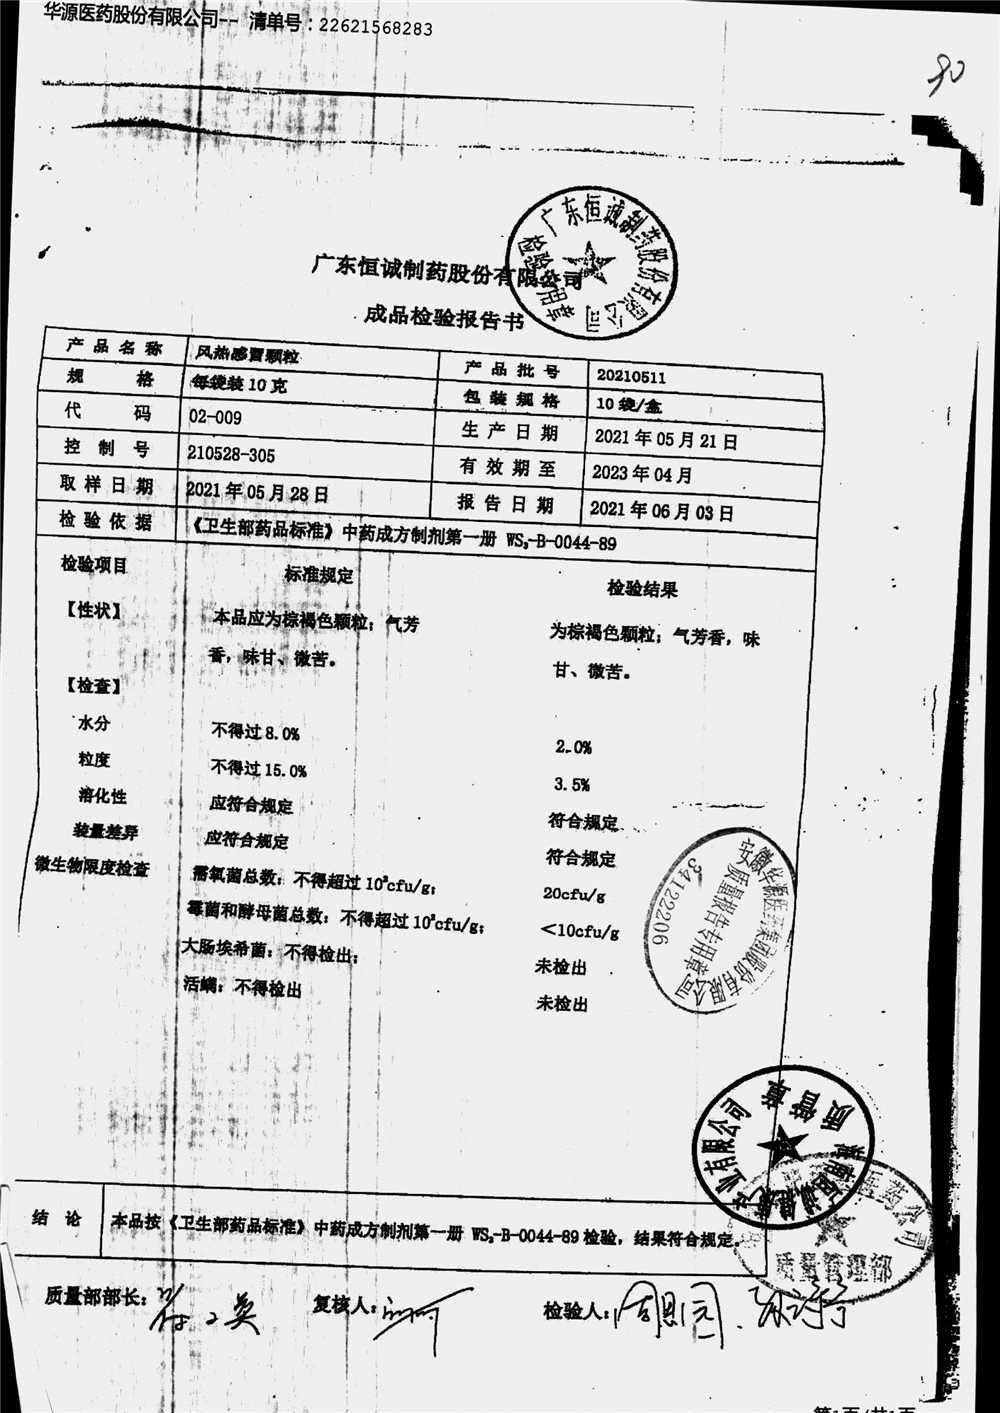 华源医药股份有限公司-- 清单号：22621568283
90
广东恒诚制药股份有限公司
检验专用章
广东恒诚制药股份有限公司
成品检验报告书
产品名称 风热感冒颗粒 产品批号 20210511
规格 每袋装10克 包装规格 10袋/盒
代码 02-009 生产日期 2021年05月21日
控制号 210528-305 有效期至 2023年04月
取样日期 2021年05月28日 报告日期 2021年06月03日
检验依据 《卫生部药品标准》中药成方制剂第一册 WS₃-B-0044-89
检验项目 标准规定 检验结果
【性状】 本品应为棕褐色颗粒；气芳 为棕褐色颗粒；气芳香，味
香，味甘、微苦。 甘、微苦。
【检查】
水分 不得过8.0% 2.0%
粒度 不得过15.0% 3.5%
溶化性 应符合规定 符合规定
装量差异 应符合规定 符合规定
微生物限度检查 需氧菌总数：不得超过10³cfu/g； 20cfu/g
霉菌和酵母菌总数：不得超过10²cfu/g； ＜10cfu/g
大肠埃希菌：不得检出； 未检出
活螨：不得检出 未检出
安徽华源医药集团股份有限公司
质量报告专用章
341222206
业有限公司
质管章
医药公司
质量管理部
结论 本品按《卫生部药品标准》中药成方制剂第一册 WS₃-B-0044-89检验，结果符合规定。
质量部部长： 复核人： 检验人：
第1页/共1页